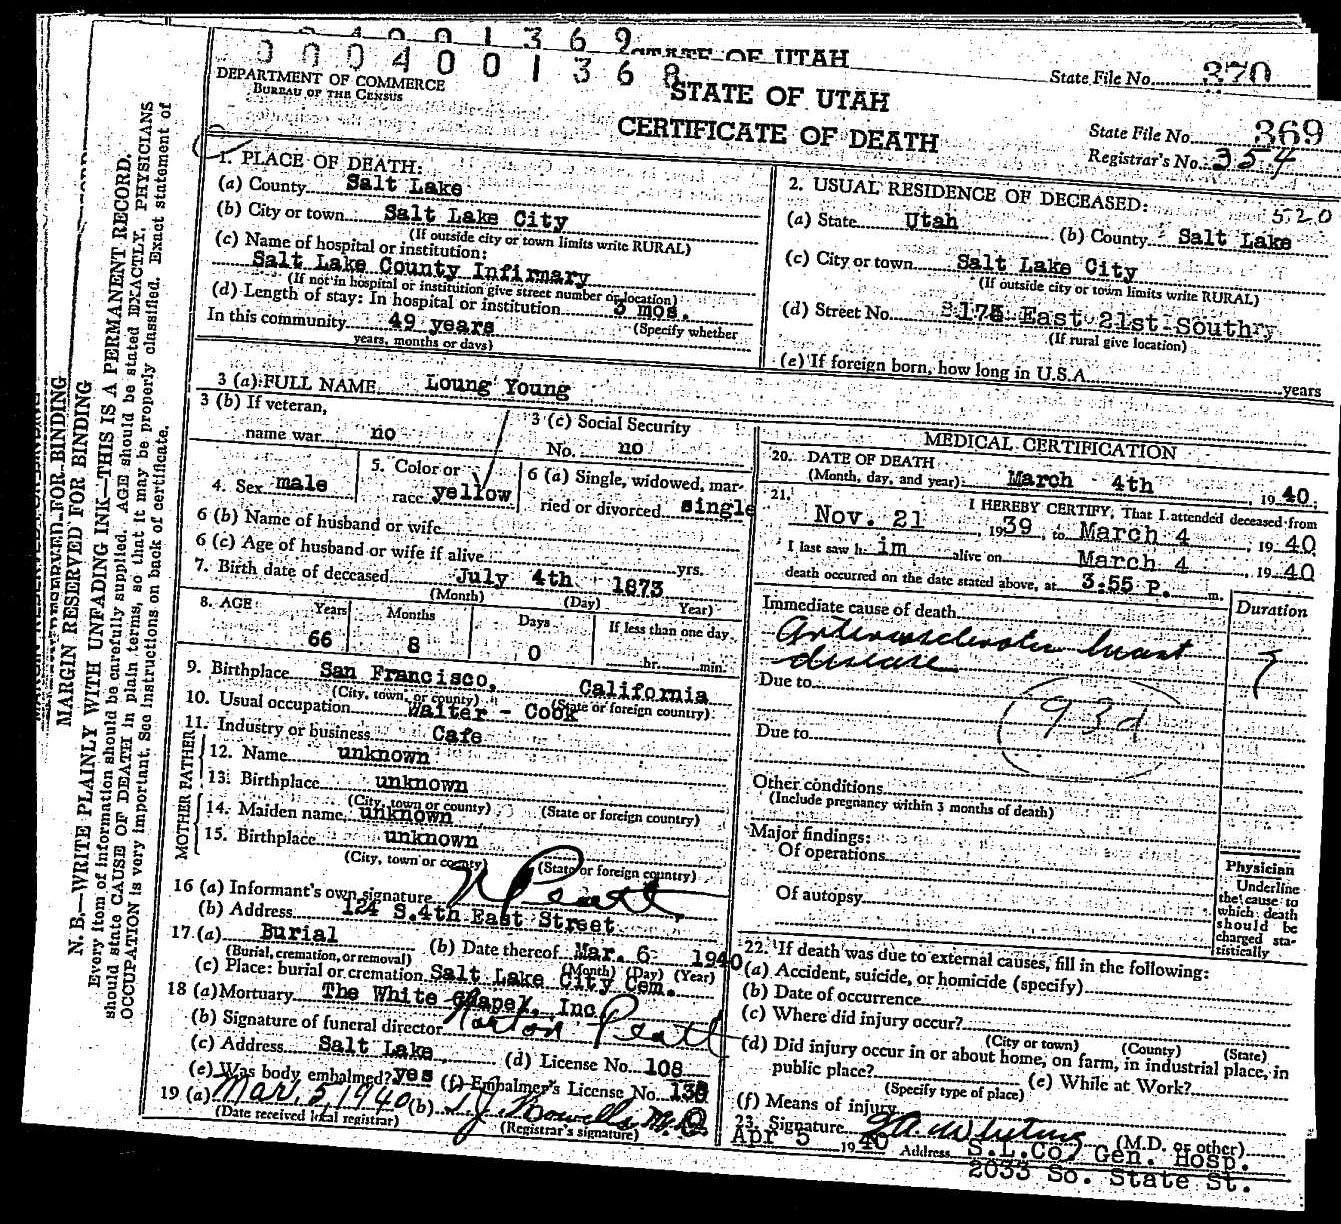 0 4 0 0 1 3 6 9
STATE OF UTAH
State File No. 370
0 0 0 4 0 0 1 3 6 8
DEPARTMENT OF COMMERCE
BUREAU OF THE CENSUS
STATE OF UTAH
CERTIFICATE OF DEATH
State File No. 369
Registrar's No. 354
MARGIN RESERVED FOR BINDING
N. B.—WRITE PLAINLY WITH UNFADING INK—THIS IS A PERMANENT RECORD.
Every item of information should be carefully supplied. AGE should be stated EXACTLY. PHYSICIANS
should state CAUSE OF DEATH in plain terms, so that it may be properly classified. Exact statement of
OCCUPATION is very important. See instructions on back of certificate.
1. PLACE OF DEATH:
(a) County Salt Lake
(b) City or town Salt Lake City
(If outside city or town limits write RURAL)
(c) Name of hospital or institution:
Salt Lake County Infirmary
(If not in hospital or institution give street number or location)
(d) Length of stay: In hospital or institution 3 mos.
In this community 49 years (Specify whether
years, months or days)
2. USUAL RESIDENCE OF DECEASED:
520
(a) State Utah (b) County Salt Lake
(c) City or town Salt Lake City
(If outside city or town limits write RURAL)
(d) Street No. 2175 East 21st South
(If rural give location)
(e) If foreign born, how long in U.S.A. years
3 (a) FULL NAME Loung Young
3 (b) If veteran,
name war no
3 (c) Social Security
No. no
4. Sex male
5. Color or
race yellow
6 (a) Single, widowed, mar-
ried or divorced single
6 (b) Name of husband or wife
6 (c) Age of husband or wife if alive yrs.
7. Birth date of deceased July 4th 1873
(Month) (Day) Year)
8. AGE: Years Months Days If less than one day
66 8 0 hr. min.
9. Birthplace San Francisco, California
(City, town, or county) (State or foreign country)
10. Usual occupation Waiter - Cook
11. Industry or business Cafe
FATHER
12. Name unknown
13. Birthplace unknown
(City, town or county) (State or foreign country)
MOTHER
14. Maiden name unknown
15. Birthplace unknown
(City, town or county) (State or foreign country)
16 (a) Informant's own signature N Pratt
(b) Address 124 S.4th East Street
17.(a) Burial (b) Date thereof Mar. 6 1940
(Burial, cremation, or removal) (Month) (Day) (Year)
(c) Place: burial or cremation Salt Lake City Cem.
18 (a) Mortuary The White Chapel, Inc
(b) Signature of funeral director Norton Pratt
(c) Address Salt Lake (d) License No. 108
(e) Was body embalmed? yes (f) Embalmer's License No.
19 (a) Mar. 5 1940 (b) T.J. Howells M.D.
(Date received local registrar) (Registrar's signature)
MEDICAL CERTIFICATION
20. DATE OF DEATH
(Month, day, and year): March 4th 1940.
21. I HEREBY CERTIFY, That I attended deceased from
Nov. 21 1939, to March 4, 1940
I last saw him alive on March 4, 1940
death occurred on the date stated above, at 3:55 P. m.
Immediate cause of death Duration
Arteriosclerotic heart ?
disease
Due to
93d
Due to
Other conditions
(Include pregnancy within 3 months of death)
Major findings:
Of operations
Of autopsy
Physician
Underline
the cause to
which death
should be
charged sta-
tistically
22. If death was due to external causes, fill in the following:
(a) Accident, suicide, or homicide (specify)
(b) Date of occurrence
(c) Where did injury occur?
(City or town) (County) (State)
(d) Did injury occur in or about home, on farm, in industrial place, in
public place? (e) While at Work?
(Specify type of place)
(f) Means of injury
23. Signature (M.D. or other)
Apr 5 1940 Address S.L.Co. Gen. Hosp.
2033 So. State St.